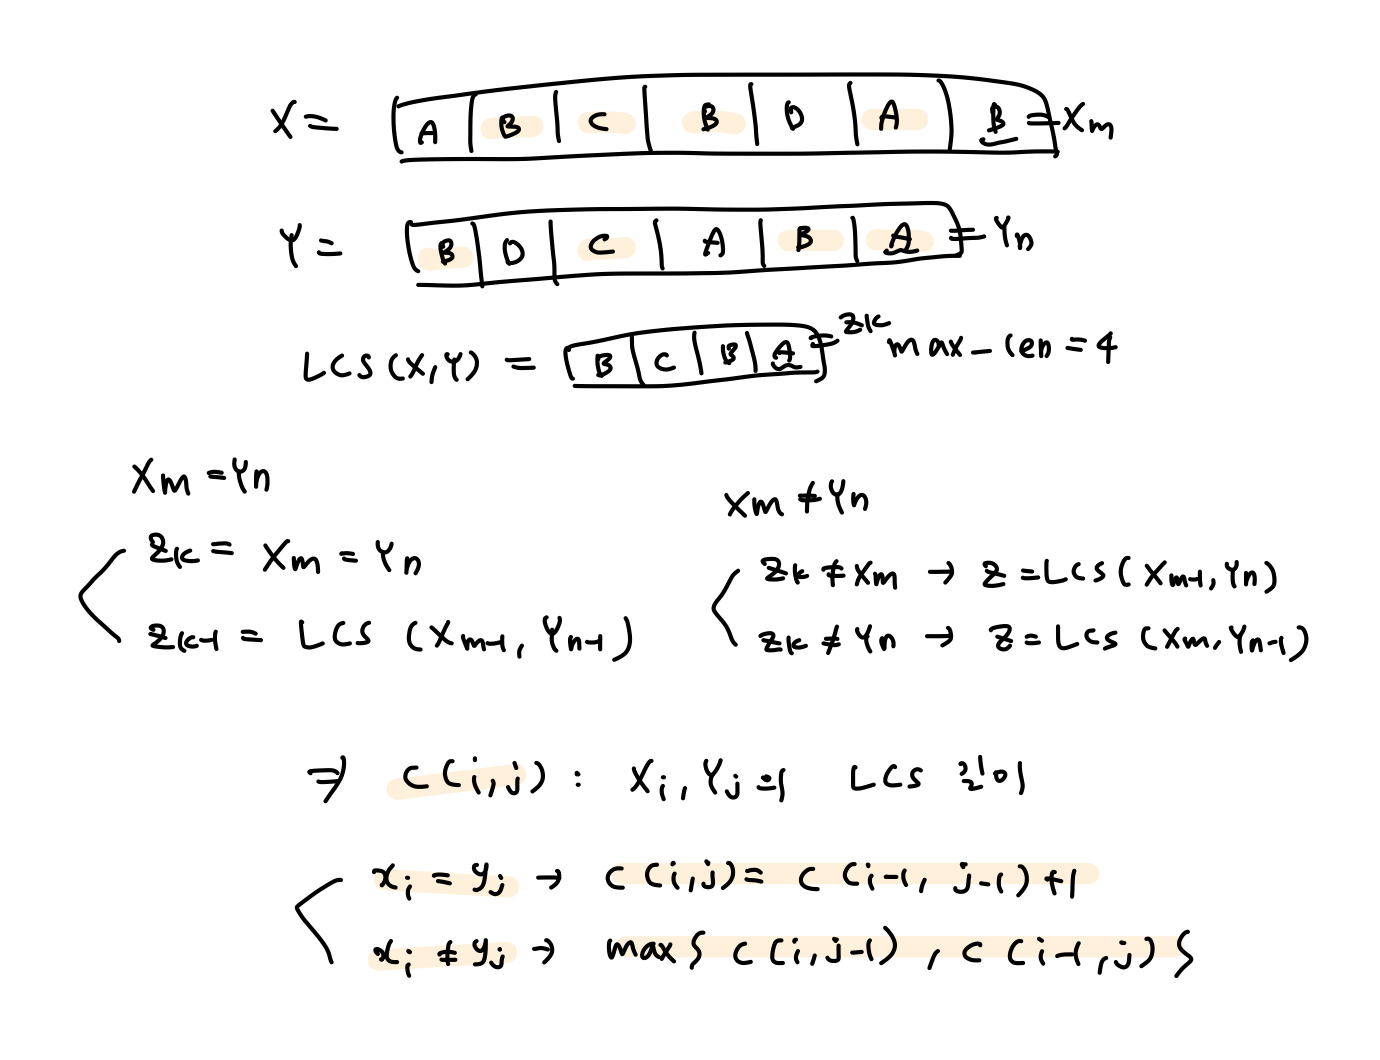 X = A B C B D A B = Xm
Y = B D C A B A = Yn
LCS (X,Y) = B C B A = Zk max_len = 4
Xm = Yn
Zk = Xm = Yn
Zk-1 = LCS (Xm-1, Yn-1)
Xm ≠ Yn
Zk ≠ Xm → Z = LCS (Xm-1, Yn)
Zk ≠ Yn → Z = LCS (Xm, Yn-1)
⇒ C(i,j) : Xi, Yj의 LCS 길이
xi = yj → C(i,j) = C(i-1, j-1) +1
xi ≠ yj → max{ C(i,j-1) , C(i-1,j) }